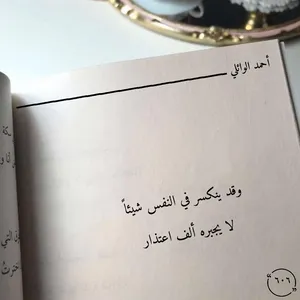 أحمد الوائلي
وقد ينكسر في النفس شيئاً
لا يجبره ألف اعتذار
٦٠٦